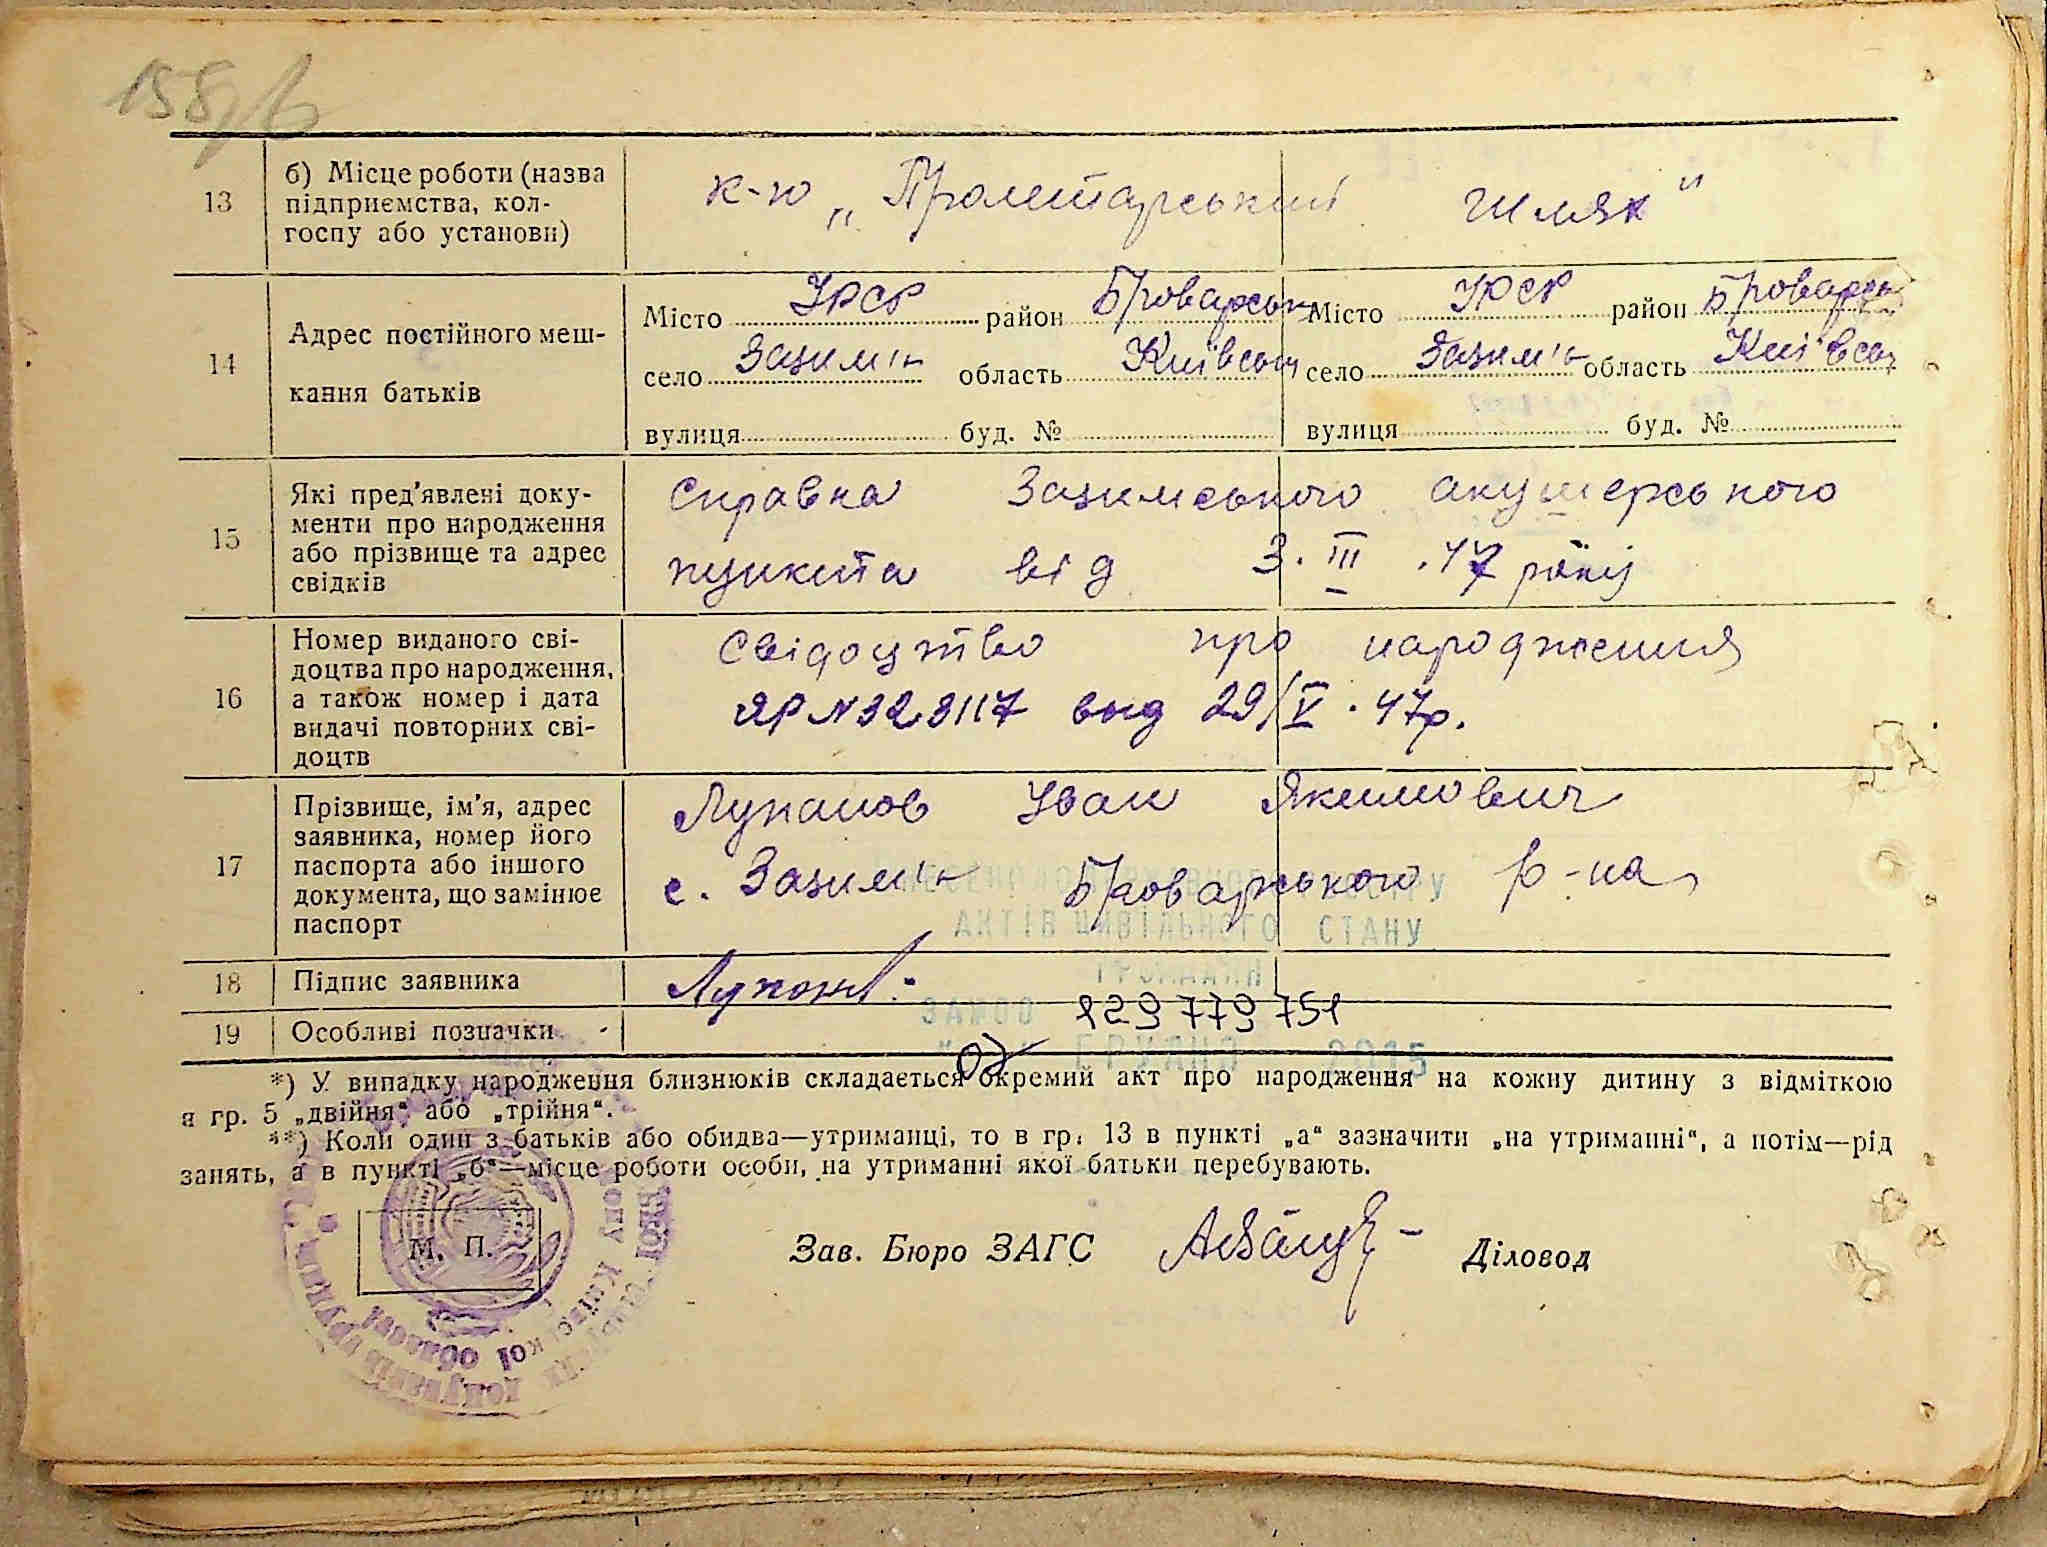 158/6
13
б) Місце роботи (назва
підприємства, кол-
госпу або установи)
к-ю „Пролетарський шлях"
14
Адрес постійного меш-
кання батьків
Місто УРСР район Броварськ
село Зазим'є область Київськ
вулиця буд. №
Місто УРСР район Броварськ
село Зазим'є область Київськ
вулиця буд. №
15
Які пред'явлені доку-
менти про народження
або прізвище та адрес
свідків
Справка Зазимського акушерського
пункта від 3.III.47 року
16
Номер виданого сві-
доцтва про народження,
а також номер і дата
видачі повторних сві-
доцтв
Свідоцтво про народження
ЯР №323117 выд 29/V.47р.
17
Прізвище, ім'я, адрес
заявника, номер його
паспорта або іншого
документа, що замінює
паспорт
Лупанов Іван Якимович
с. Зазим'є Броварського р-на
АКТІВ ЦИВІЛЬНОГО СТАНУ
ГРОМАДЯН
18
Підпис заявника
19
Особливі позначки
ЗА №00 129779751
ГРУДНЯ 2015
*) У випадку народження близнюків складається окремий акт про народження на кожну дитину з відміткою
в гр. 5 „двійня" або „трійня".
**) Коли один з батьків або обидва—утриманці, то в гр. 13 в пункті „а" зазначити „на утриманні", а потім—рід
занять, а в пункті „б"—місце роботи особи, на утриманні якої батьки перебувають.
М. П.
Зав. Бюро ЗАГС
Діловод